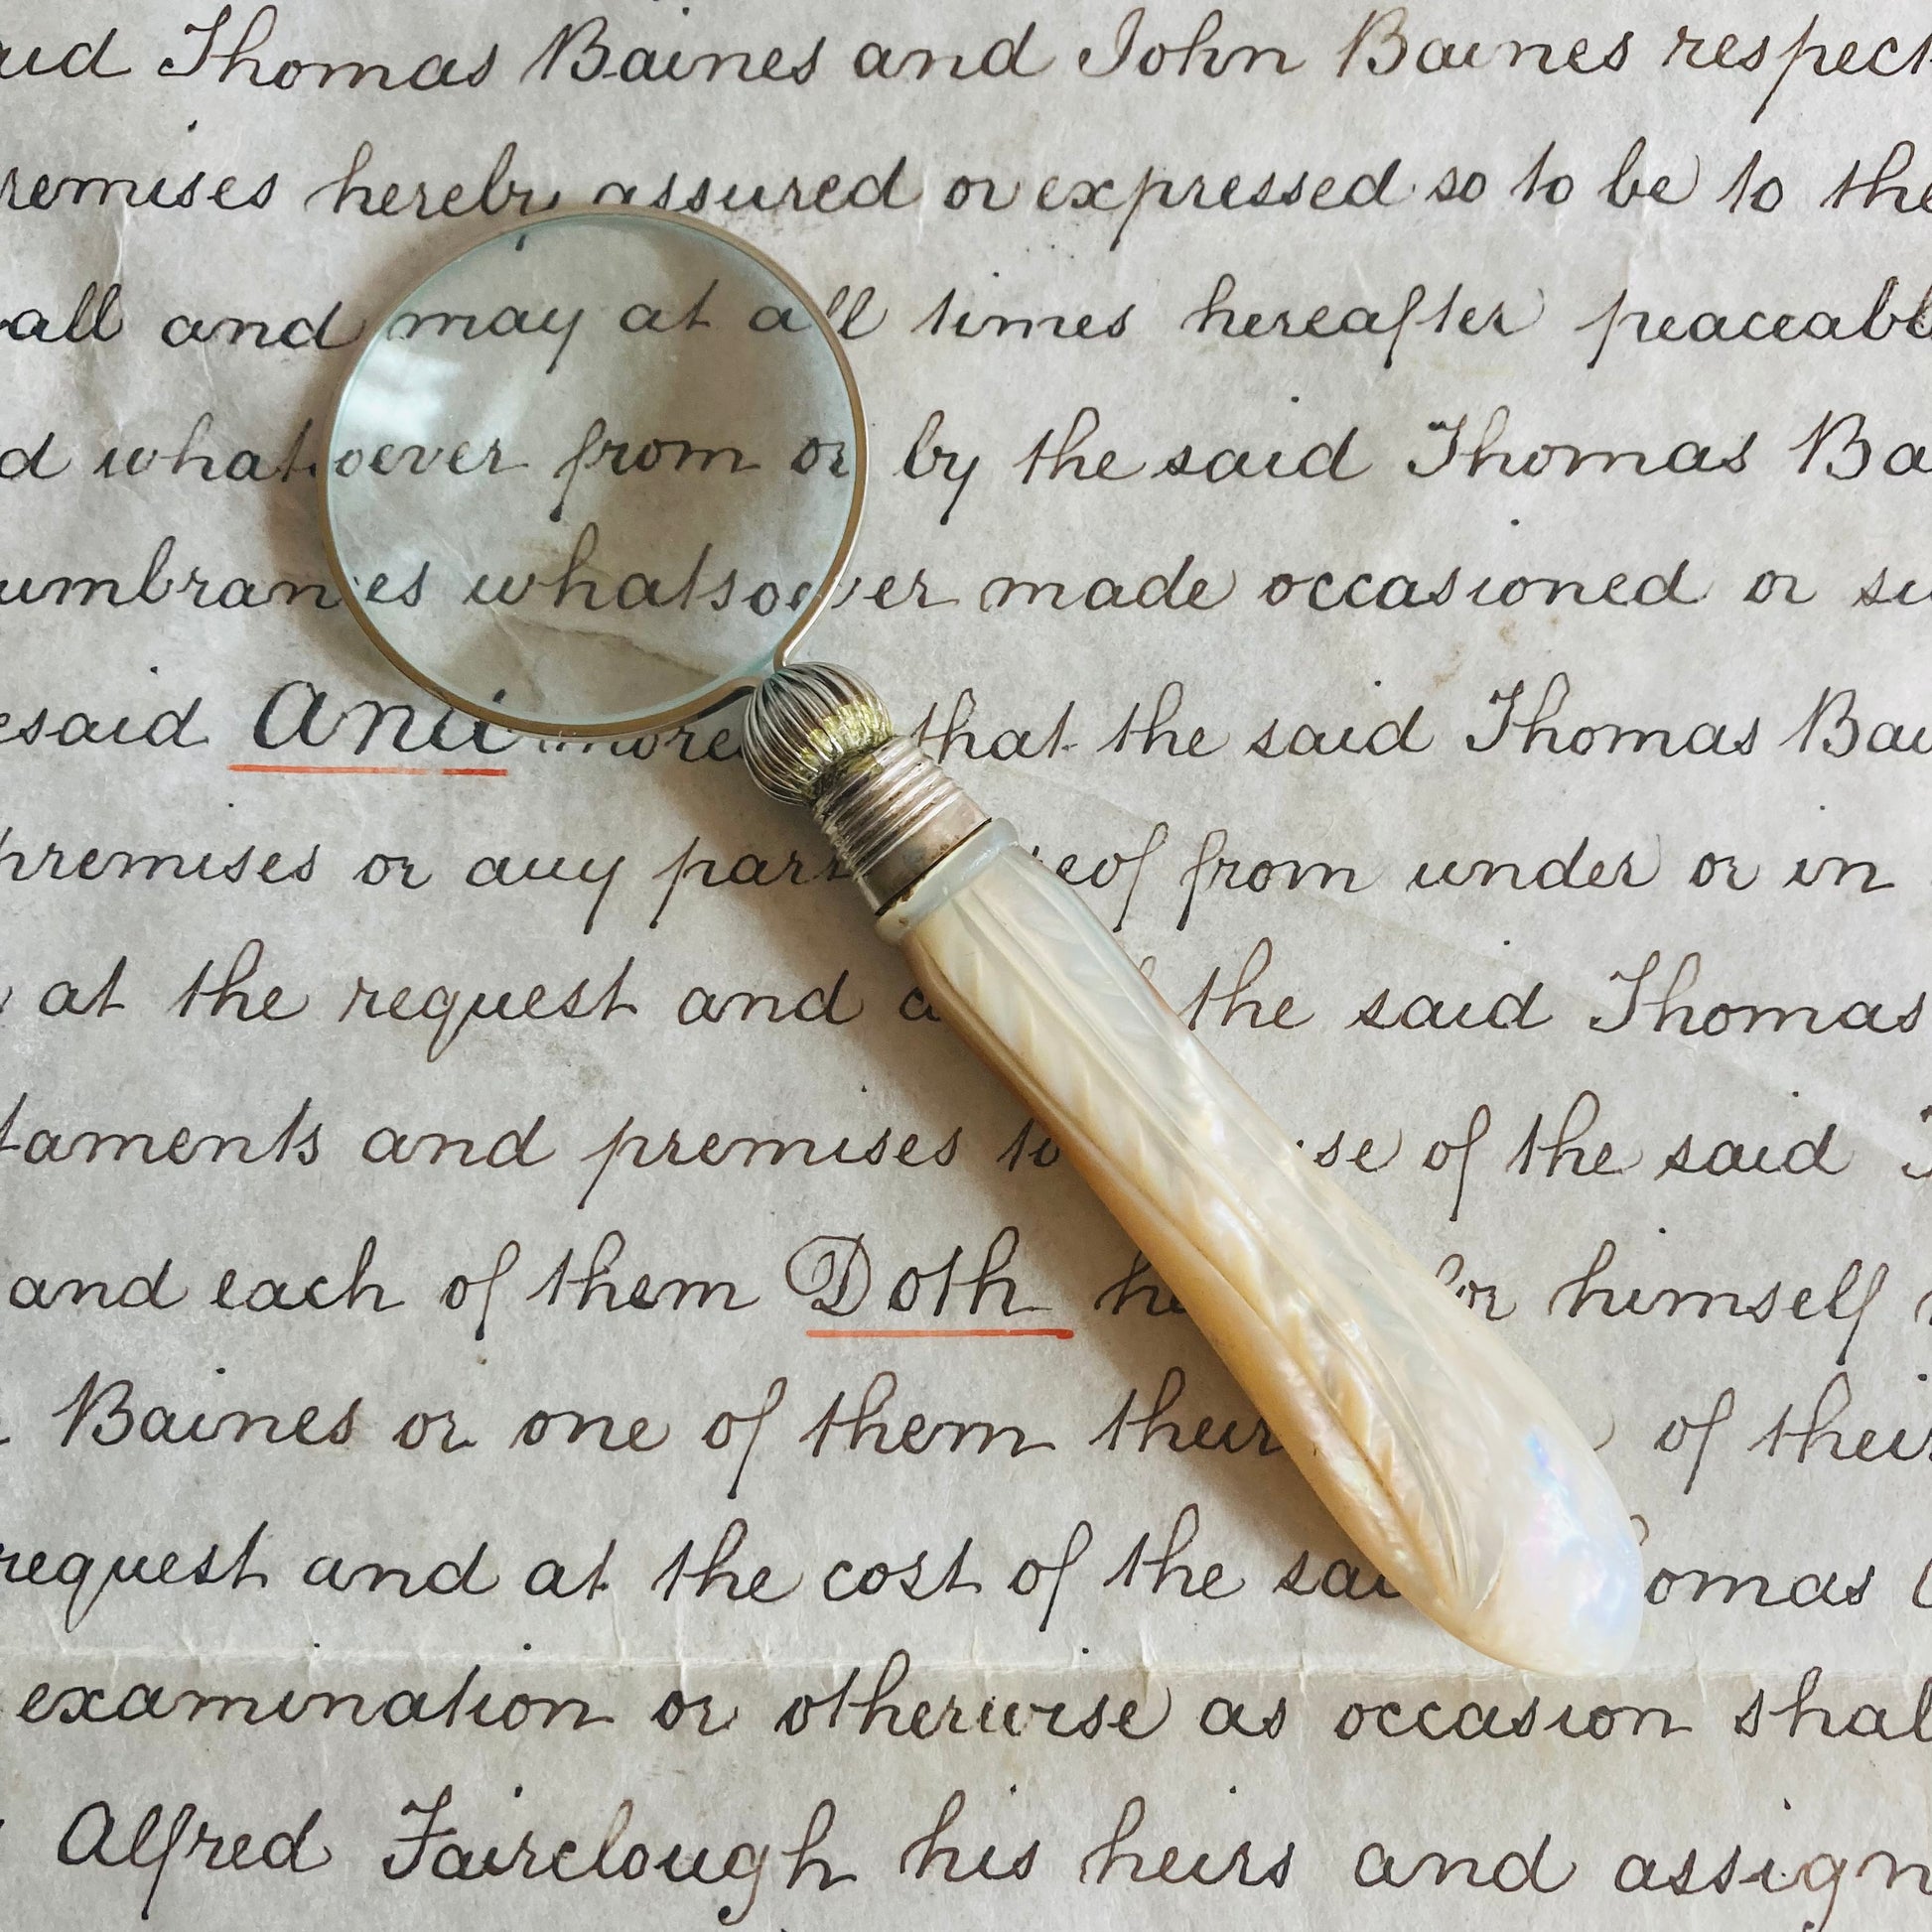 Thomas Baines and John Baines
hereby assured or expressed so to be to the
all and may at all times hereafter
from or by the said Thomas
es whatsoever made occasioned or
And that the said Thomas
premises or any part from under or in
at the request and the said Thomas
and premises to of the said
and each of them Doth himself
Baines or one of them their of their
request and at the cost of the said
examination or otherwise as occasion
Alfred Fairclough his heirs and